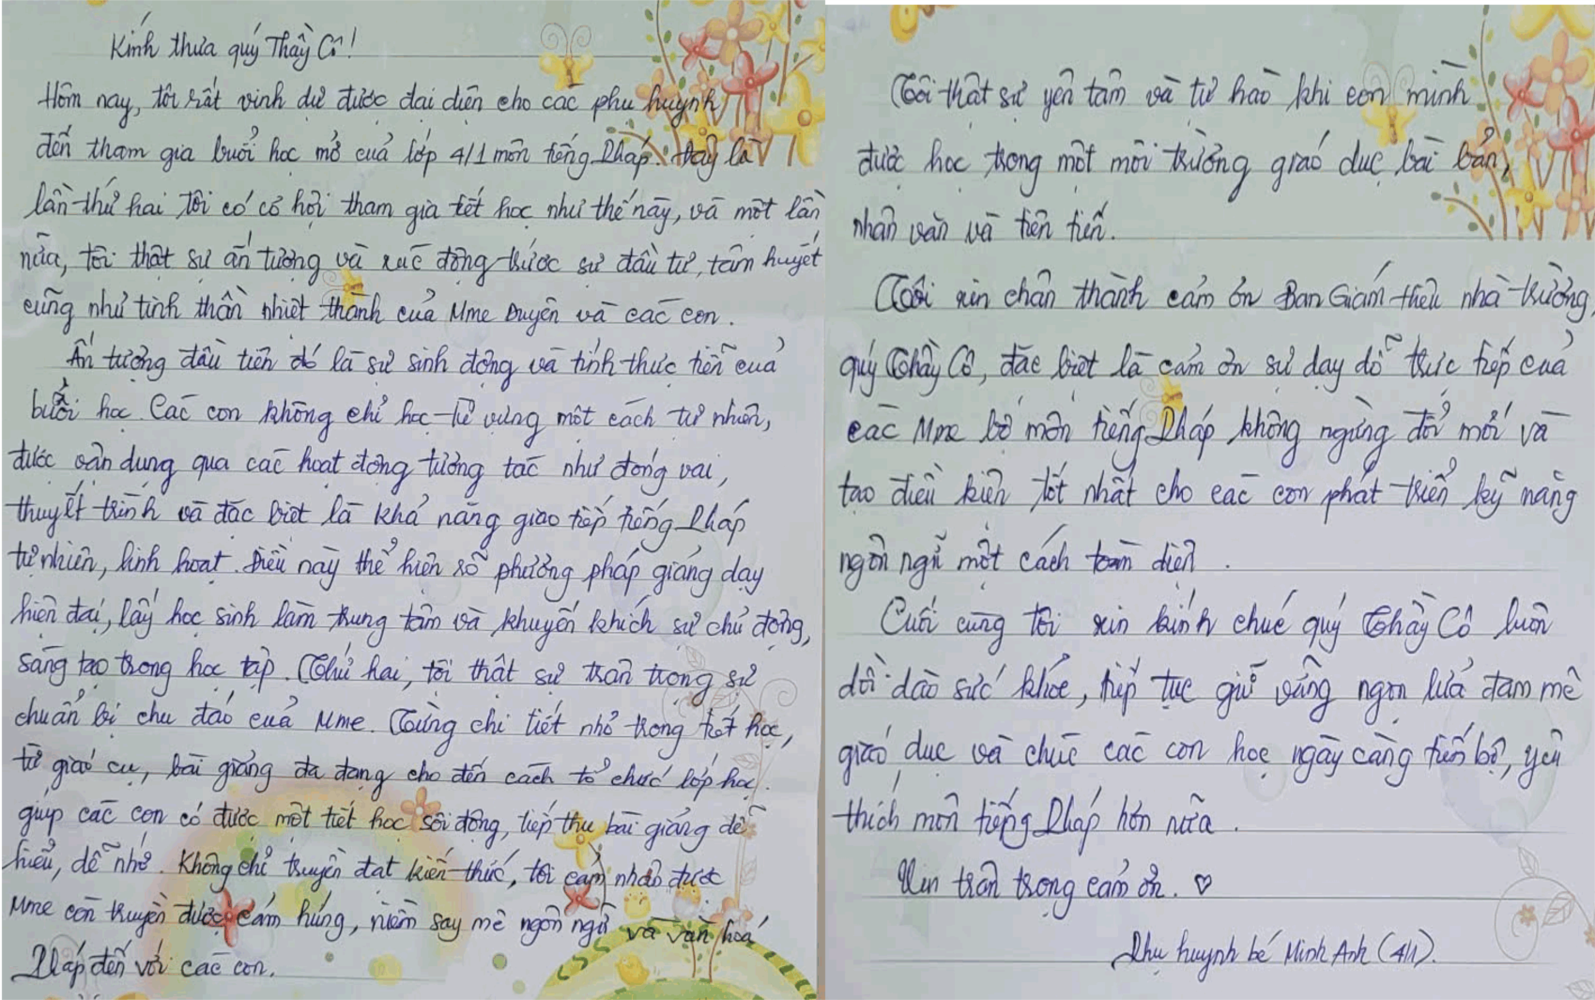 Kính thưa quý Thầy Cô!
Hôm nay, tôi rất vinh dự được đại diện cho các phụ huynh
đến tham gia buổi học mở của lớp 4/1 môn tiếng Pháp. Đây là
lần thứ hai tôi có cơ hội tham gia tiết học như thế này, và một lần
nữa, tôi thật sự ấn tượng và xúc động trước sự đầu tư, tâm huyết
cũng như tinh thần nhiệt thành của Mme Duyên và các con.
Ấn tượng đầu tiên đó là sự sinh động và tính thực tiễn của
buổi học. Các con không chỉ học từ vựng một cách tự nhiên,
được vận dụng qua các hoạt động tương tác như đóng vai,
thuyết trình và đặc biệt là khả năng giao tiếp tiếng Pháp
tự nhiên, linh hoạt. Điều này thể hiện rõ phương pháp giảng dạy
hiện đại, lấy học sinh làm trung tâm và khuyến khích sự chủ động,
sáng tạo trong học tập. Thứ hai, tôi thật sự trân trọng sự
chuẩn bị chu đáo của Mme. Từng chi tiết nhỏ trong tiết học,
từ giáo cụ, bài giảng đa dạng cho đến cách tổ chức lớp học.
giúp các con có được một tiết học sôi động, tiếp thu bài giảng dễ
hiểu, dễ nhớ. Không chỉ truyền đạt kiến thức, tôi cảm nhận được
Mme còn truyền được cảm hứng, niềm say mê ngôn ngữ và văn hoá
Pháp đến với các con.
Tôi thật sự yên tâm và tự hào khi con mình
được học trong một môi trường giáo dục bài bản,
nhân văn và tiên tiến.
Tôi xin chân thành cảm ơn Ban Giám hiệu nhà trường,
quý Thầy Cô, đặc biệt là cảm ơn sự dạy dỗ trực tiếp của
các Mme bộ môn tiếng Pháp không ngừng đổi mới và
tạo điều kiện tốt nhất cho các con phát triển kỹ năng
ngôn ngữ một cách toàn diện.
Cuối cùng tôi xin kính chúc quý Thầy Cô luôn
dồi dào sức khỏe, tiếp tục giữ vững ngọn lửa đam mê
giáo dục và chúc các con học ngày càng tiến bộ, yêu
thích môn tiếng Pháp hơn nữa.
Xin trân trọng cảm ơn. ♡
Phụ huynh bé Minh Anh (4/1).